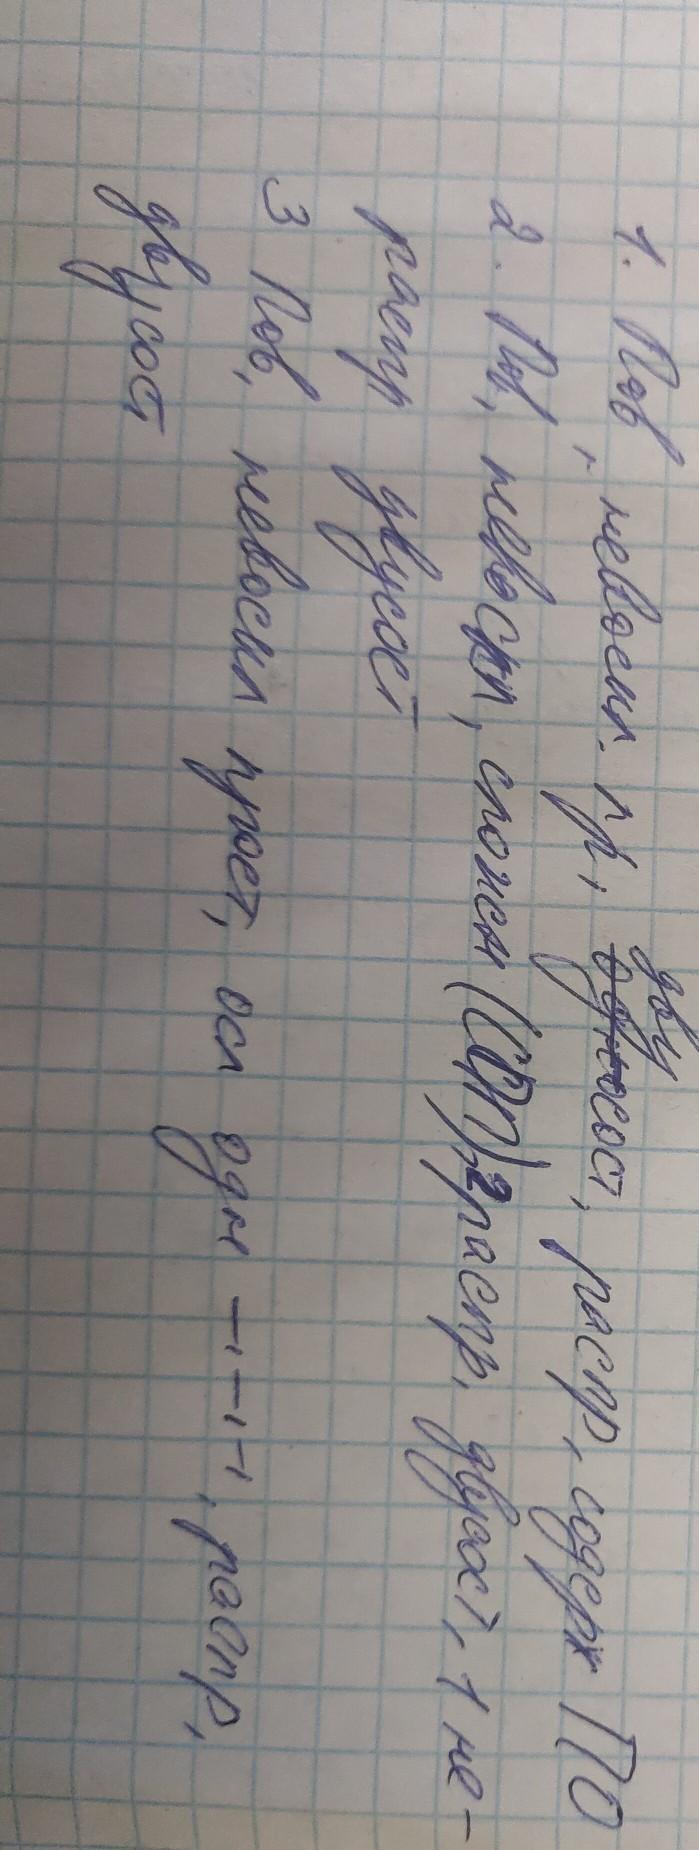 1. Пов, невоскл. пр, двусост, распр, содерж ПО
2. Пов, невоскл, сложн (СПП), 2 распр, двусост, 1 не-
распр двусост
3 Пов, невоскл прост, осл одн —, —, —, распр,
двусост